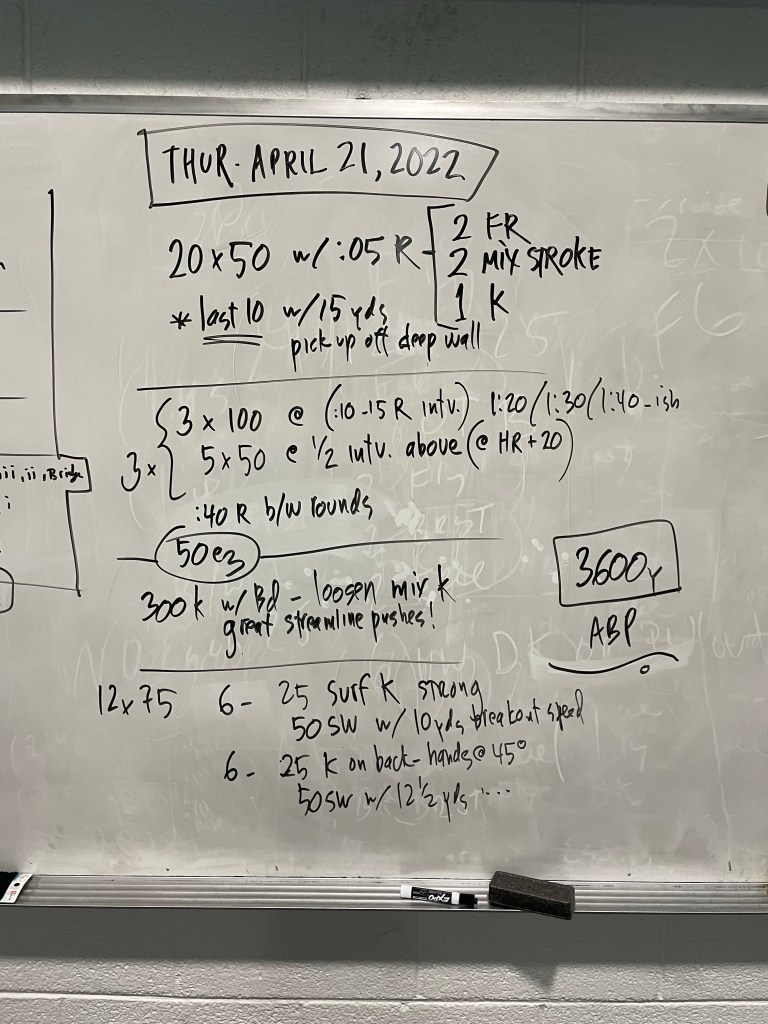 THUR. APRIL 21, 2022
20x50 w/ :05 R - 2 FR
2 MIX STROKE
1 K
* last 10 w/ 15 yds
pick up off deep wall
3 x { 3 x 100 @ (:10-15 R intv.) 1:20/1:30/1:40-ish
5 x 50 @ 1/2 intv. above (@ HR+20)
:40 R b/w rounds
50 ez
300 k w/ Bd - loosen mix k
great streamline pushes!
3600y
ABP
12x75 6- 25 surf K strong
50 SW w/ 10yds breakout speed
6- 25 K on back- hands@ 45°
50 SW w/ 12 1/2 yds ...
iii, ii, Bridge
i
EXPO